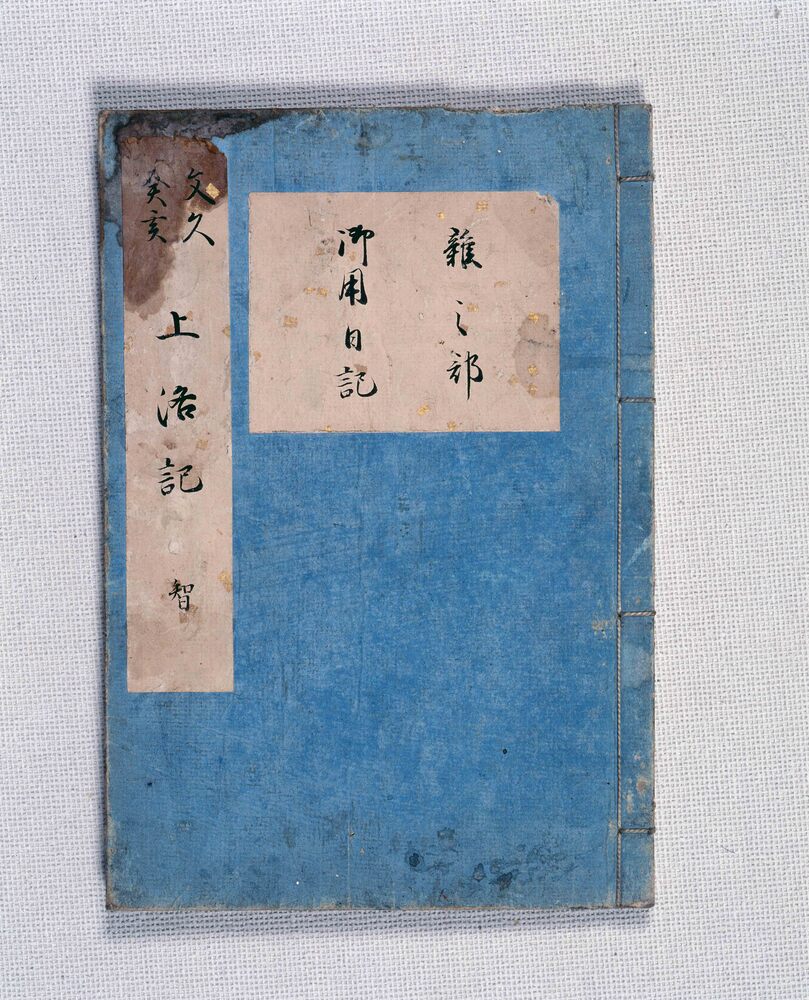 雑之部
御用日記
文久
癸亥
上洛記 智